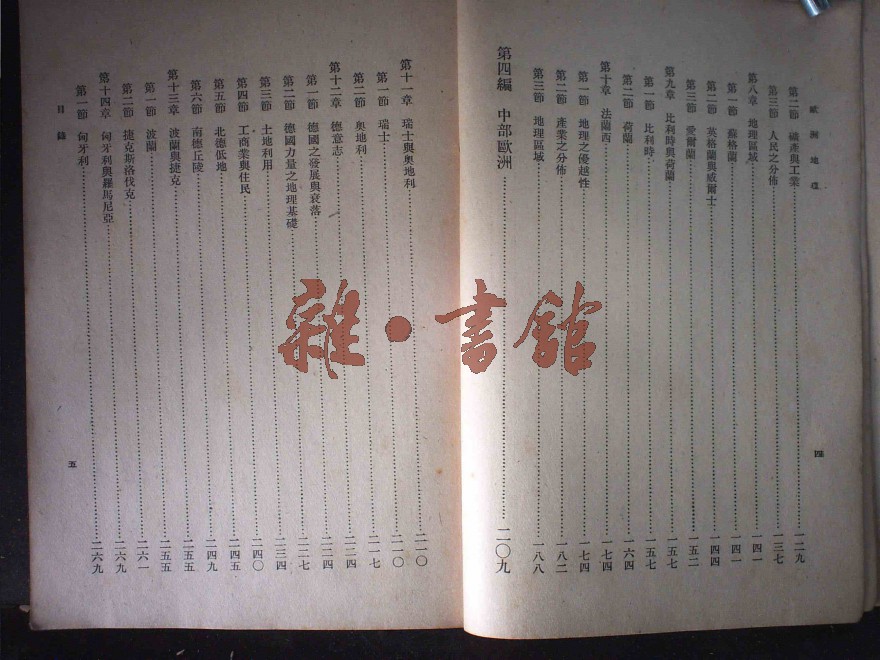 歐洲地理
第二節 礦產與工業 一二九
第三節 人民之分佈 一三七
第八章 地理區域 一四一
第一節 蘇格蘭 一四一
第二節 英格蘭與威爾士 一四四
第三節 愛爾蘭 一五二
第九章 比利時與荷蘭 一五七
第一節 比利時 一五七
第二節 荷蘭 一六四
第十章 法蘭西 一七四
第一節 地理之優越性 一七四
第二節 產業之分佈 一八二
第三節 地理區域 一八八
第四編 中部歐洲 二〇九
四
第十一章 瑞士與奧地利 二一〇
第一節 瑞士 二一〇
第二節 奧地利 二一七
第十二章 德意志 二二四
第一節 德國之發展與衰落 二二四
第二節 德國力量之地理基礎 二二七
第三節 土地利用 二三四
第四節 工商業與住民 二四〇
第五節 北德低地 二四五
第六節 南德丘陵 二四九
第十三章 波蘭與捷克 二五五
第一節 波蘭 二五五
第二節 捷克斯洛伐克 二六一
第十四章 匈牙利與羅馬尼亞 二六九
第一節 匈牙利 二六九
目錄
五
雜·書館